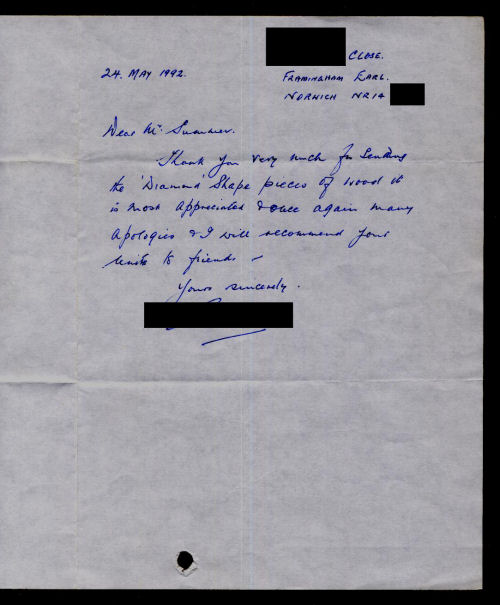 CLOSE.
24. MAY 1992.
FRAMINGHAM EARL.
NORWICH NR14
Dear Mr Summer.
Thank you very much for sending
the 'Diamond' Shape pieces of wood it
is most appreciated & once again many
apologies & I will recommend your
units to friends –
Yours sincerely.